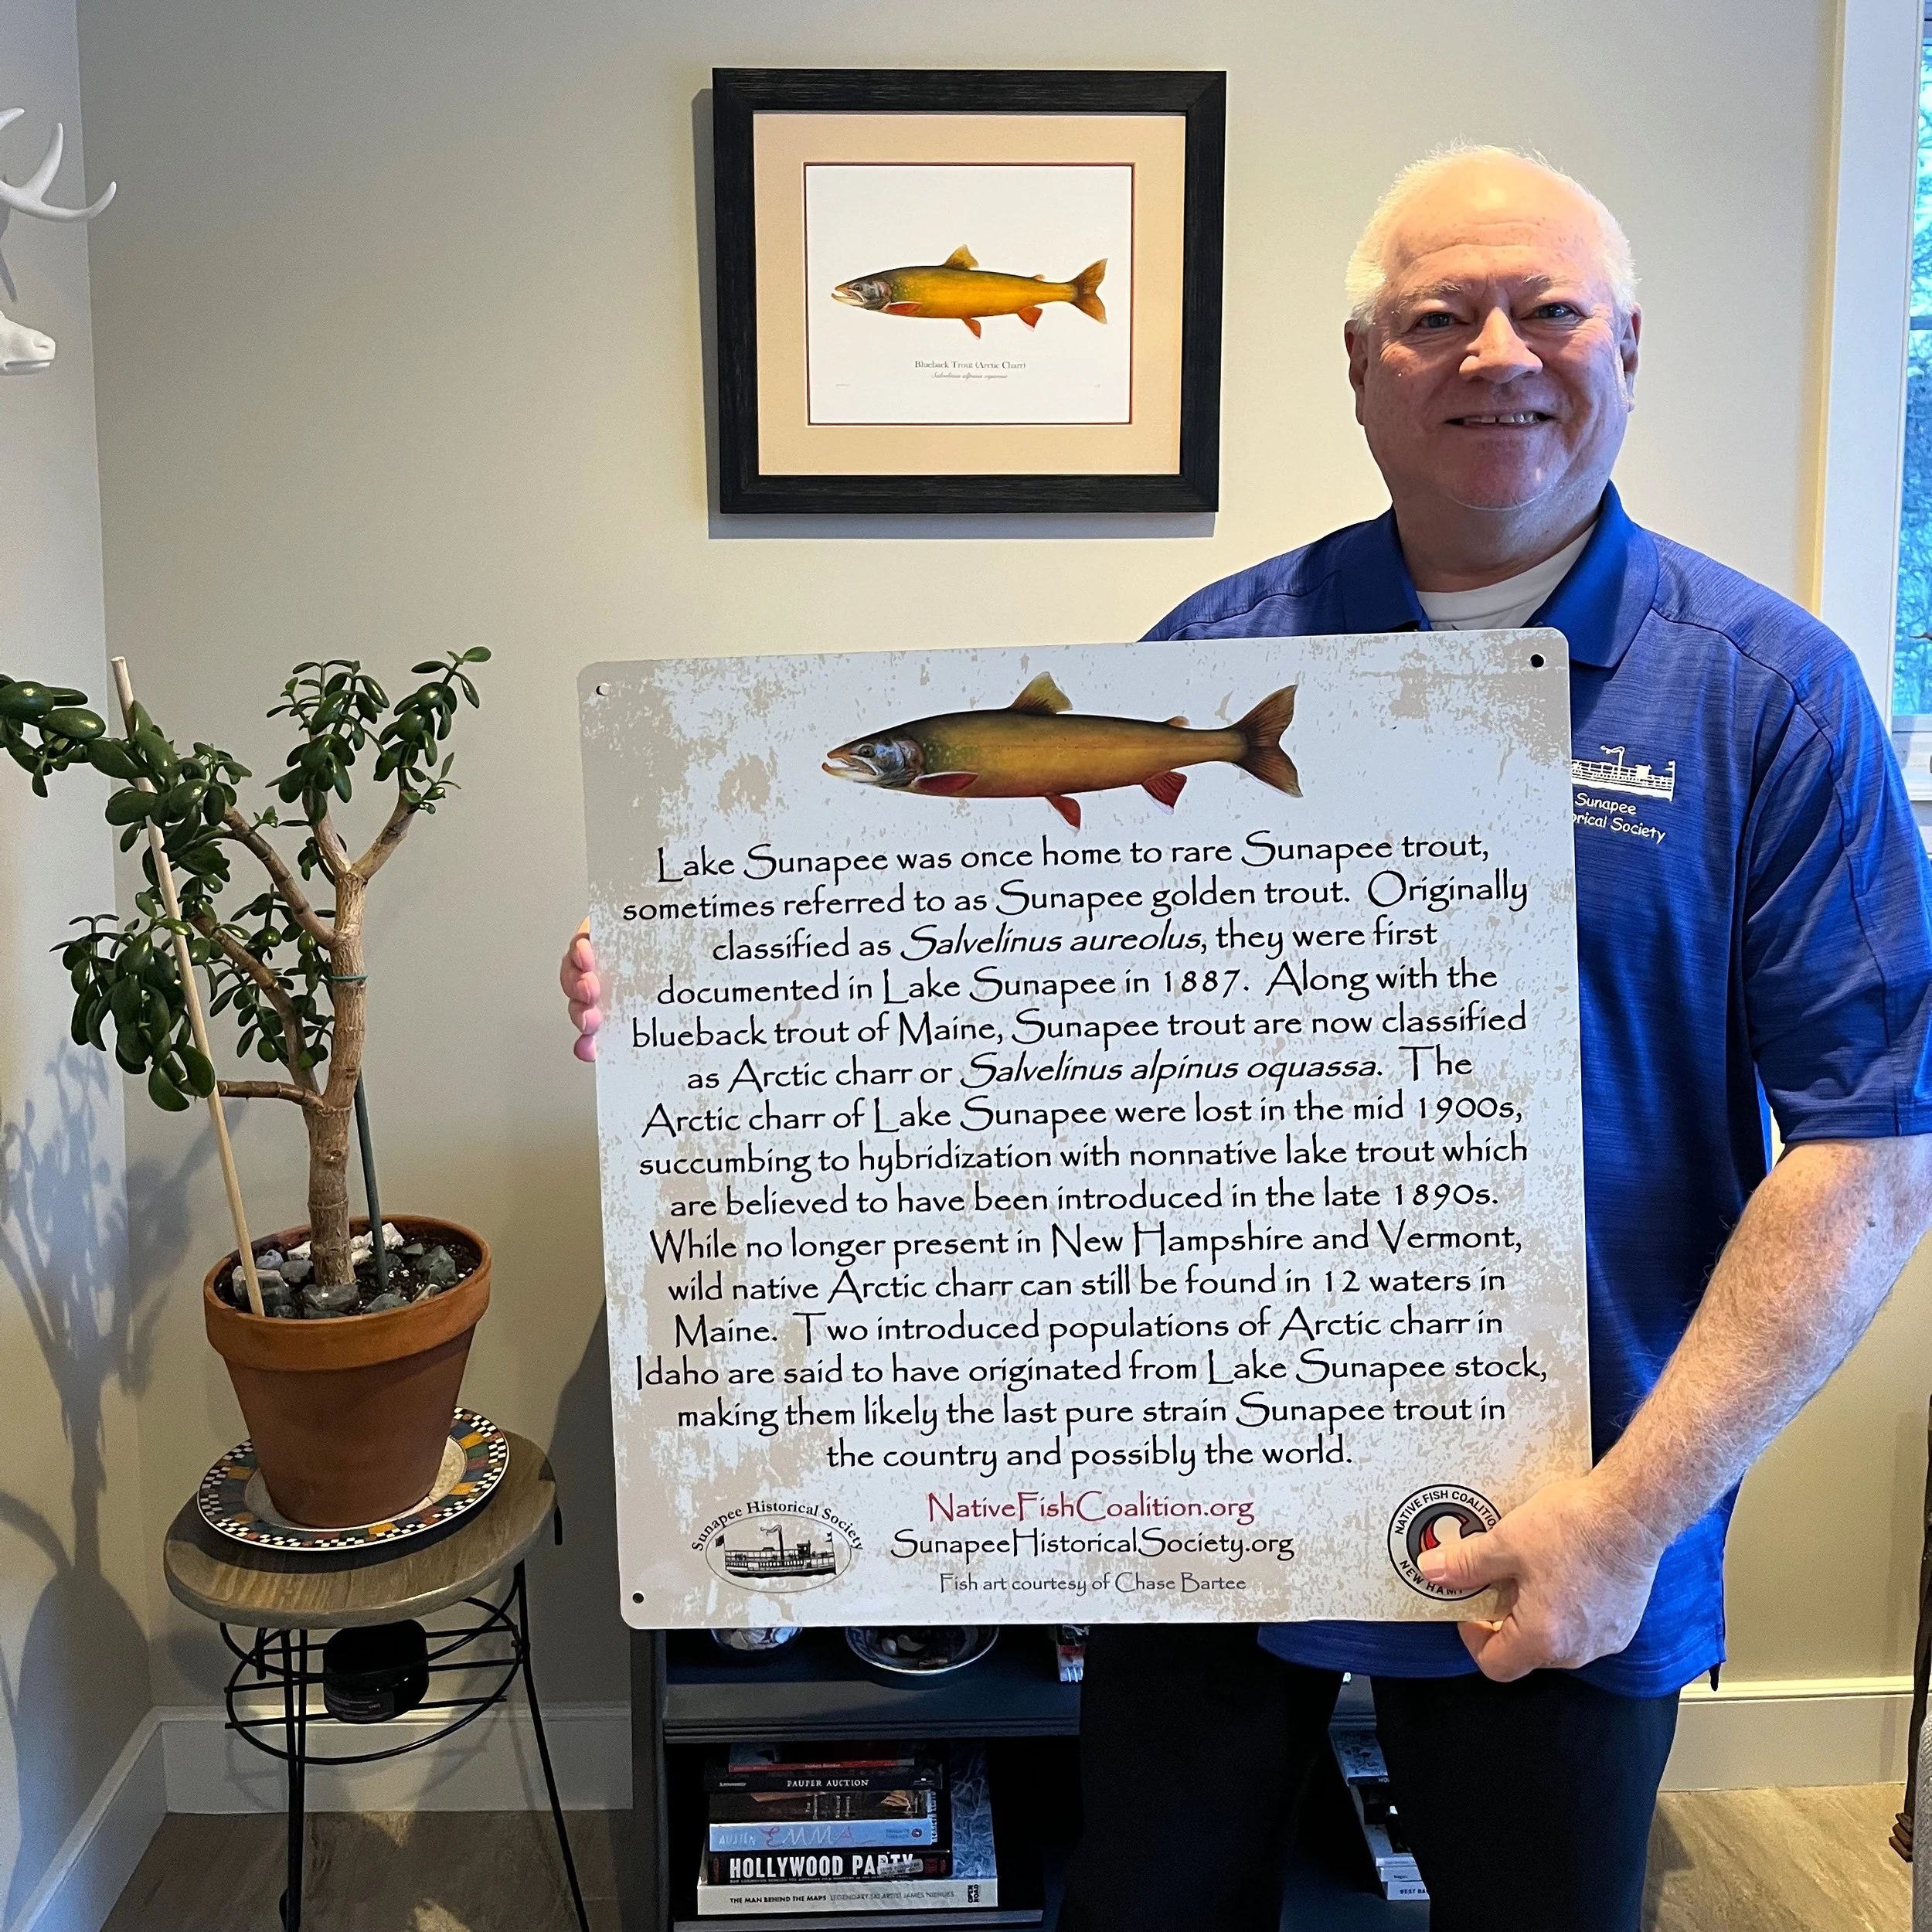 Blueback Trout (Arctic Charr)
Sunapee
orical Society
Lake Sunapee was once home to rare Sunapee trout,
sometimes referred to as Sunapee golden trout. Originally
classified as Salvelinus aureolus, they were first
documented in Lake Sunapee in 1887. Along with the
blueback trout of Maine, Sunapee trout are now classified
as Arctic charr or Salvelinus alpinus oquassa. The
Arctic charr of Lake Sunapee were lost in the mid 1900s,
succumbing to hybridization with nonnative lake trout which
are believed to have been introduced in the late 1890s.
While no longer present in New Hampshire and Vermont,
wild native Arctic charr can still be found in 12 waters in
Maine. Two introduced populations of Arctic charr in
Idaho are said to have originated from Lake Sunapee stock,
making them likely the last pure strain Sunapee trout in
the country and possibly the world.
Sunapee Historical Society
NativeFishCoalition.org
SunapeeHistoricalSociety.org
Fish art courtesy of Chase Bartee
NATIVE FISH COALITIO
NEW HAM
PAUPER AUCTION
AUSTEN EMMA
HOLLYWOOD PARTY
THE MAN BEHIND THE MAPS LEGENDARY SKI ARTIST JAMES NIEHUES
OPEN ROAD